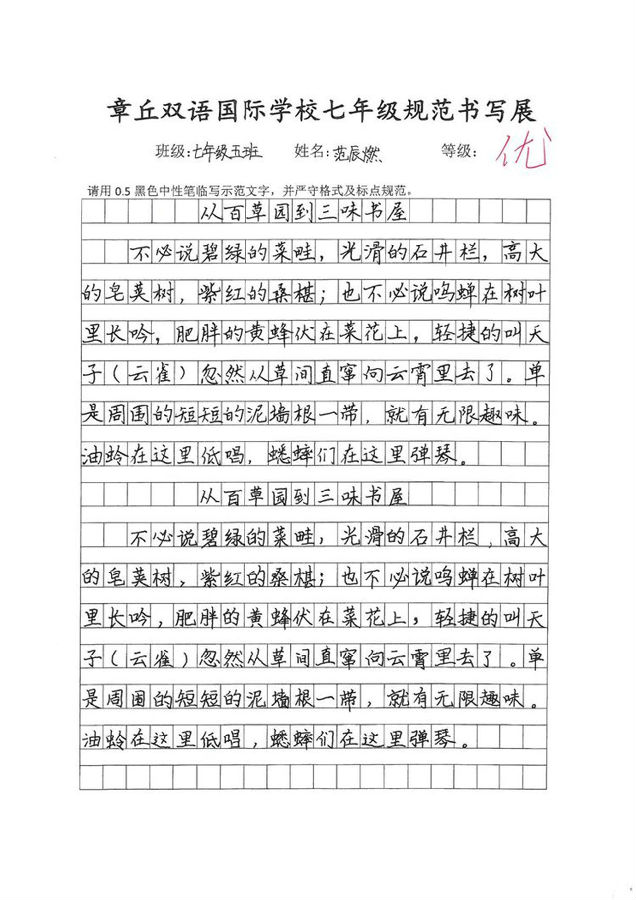 章丘双语国际学校七年级规范书写展
班级:七年级五班 姓名:范辰燃 等级: 优
请用 0.5 黑色中性笔临写示范文字，并严守格式及标点规范。
从百草园到三味书屋
不必说碧绿的菜畦，光滑的石井栏，高大
的皂荚树，紫红的桑椹；也不必说鸣蝉在树叶
里长吟，肥胖的黄蜂伏在菜花上，轻捷的叫天
子（云雀）忽然从草间直窜向云霄里去了。单
是周围的短短的泥墙根一带，就有无限趣味。
油蛉在这里低唱，蟋蟀们在这里弹琴。
从百草园到三味书屋
不必说碧绿的菜畦，光滑的石井栏，高大
的皂荚树，紫红的桑椹；也不必说鸣蝉在树叶
里长吟，肥胖的黄蜂伏在菜花上，轻捷的叫天
子（云雀）忽然从草间直窜向云霄里去了。单
是周围的短短的泥墙根一带，就有无限趣味。
油蛉在这里低唱，蟋蟀们在这里弹琴。